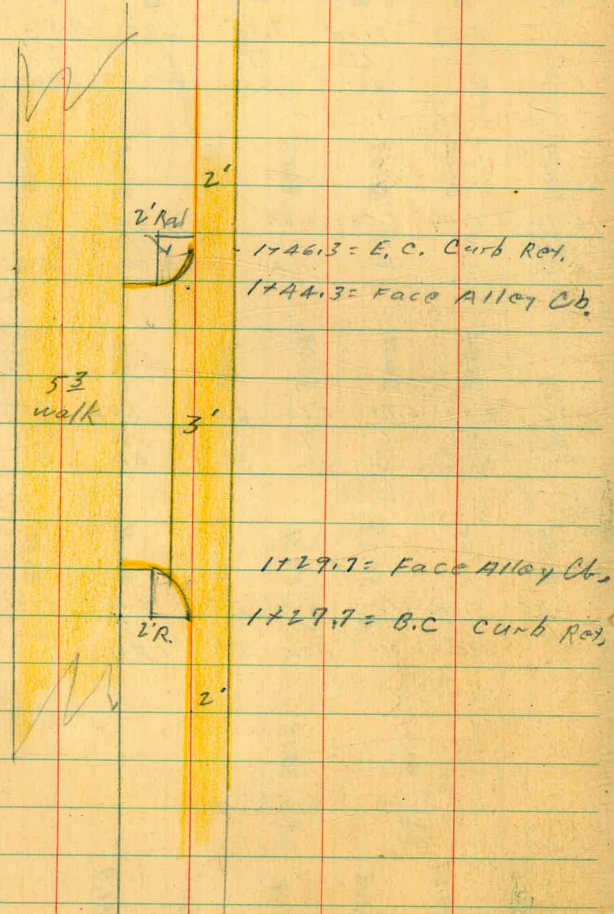 2'
2' Rad
1+46.3 = E.C. Curb Ret.
1+44.3 = Face Alley Cb.
5 3
walk
3'
1+29.7 = Face Alley Cb.
1+27.7 = B.C Curb Ret.
2'R.
2'